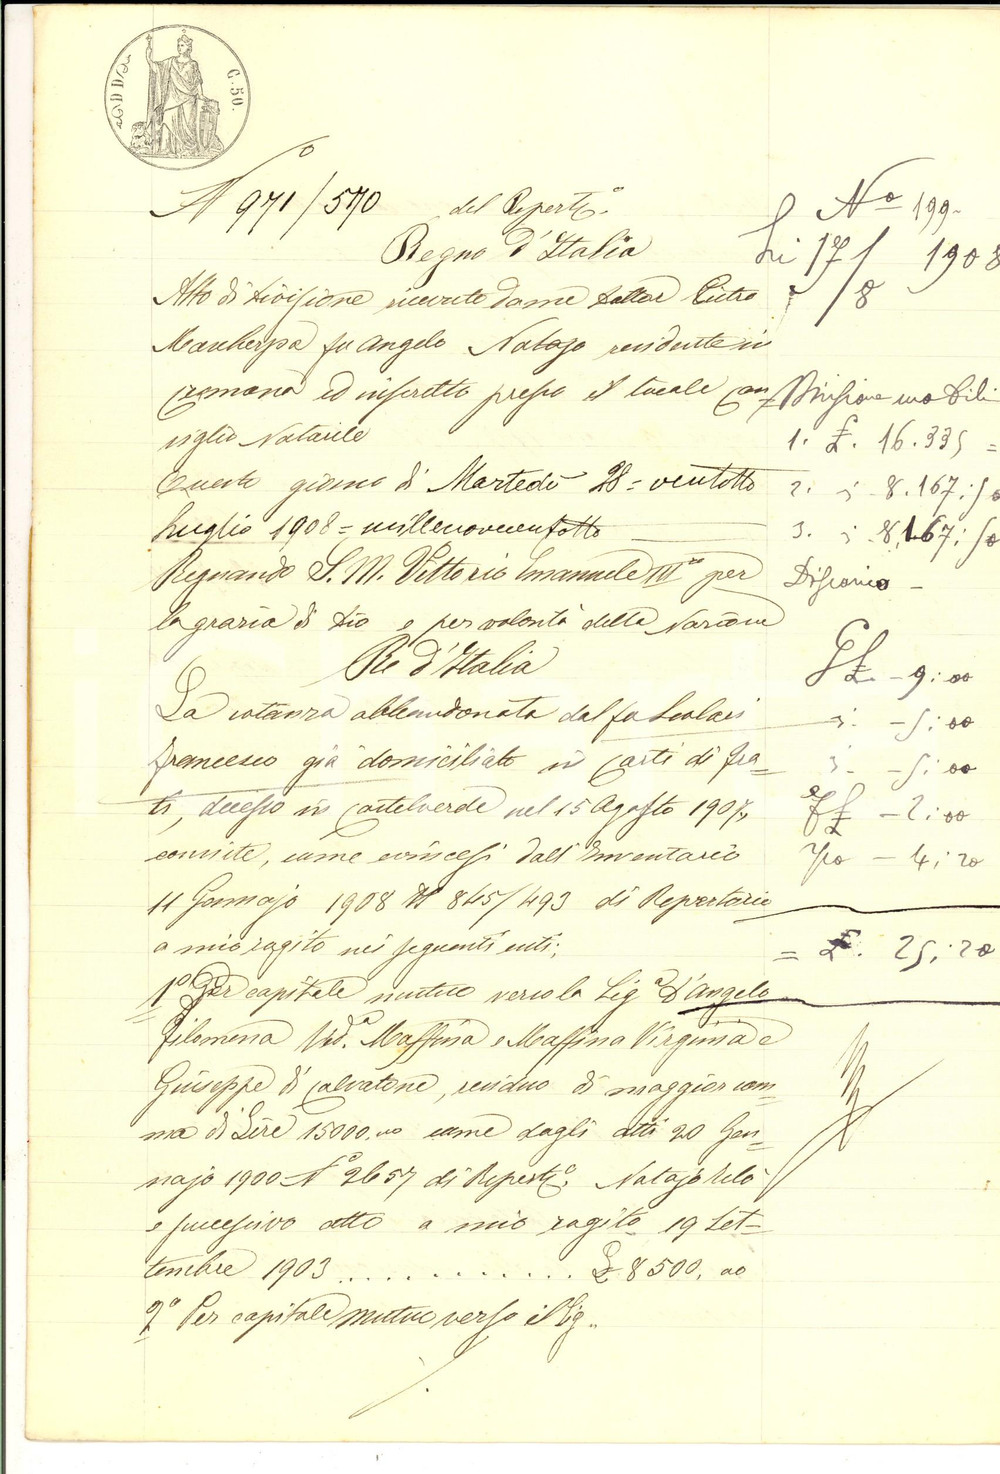 C. 50.
N° 971/570 del Repert.°
Regno d'Italia
Atto di divisione ricevuto da me dottor Pietro
fu Angelo Notajo residente in
Cremona ed inscritto presso il locale Con=
siglio Notarile
Questo giorno di Martedì 28= ventotto
Luglio 1908= millenovecentotto
Regnando S. M. Vittorio Emanuele III° per
la grazia di Dio e per volontà della Nazione
Re d'Italia
La sostanza abbandonata dal fu Scolari
Francesco già domiciliato in Corti de' Fra=
ti, decesso in Castelverde nel 15 Agosto 1907,
consiste, come evincesi dall'Inventario
11 Gennajo 1908 N° 845/493 di Repertorio
a mio rogito nei seguenti enti:
1° Per capitale mutuo verso la Sig.a D'Angelo
Filomena Ved.a Maffina e Maffina Virginia e
Giuseppe di Calvatone, residuo di maggior som=
ma di Lire 15000.00 come dagli atti 20 Gen=
najo 1900 N° 2657 di Repert.° Notajo
e successivo atto a mio rogito 19 Set=
tembre 1903 ............. £ 8500.00
2° Per capitale mutuo verso il Sig..
N° 199.
Li 17/8 1908
Divisione mobili
1. £. 16.335 =
2. " 8.167:50
3. " 8.167:50
£ - 9:00
" - 5:00
" - 5:00
£ - 2:00
- 4:20
= £. 25:20